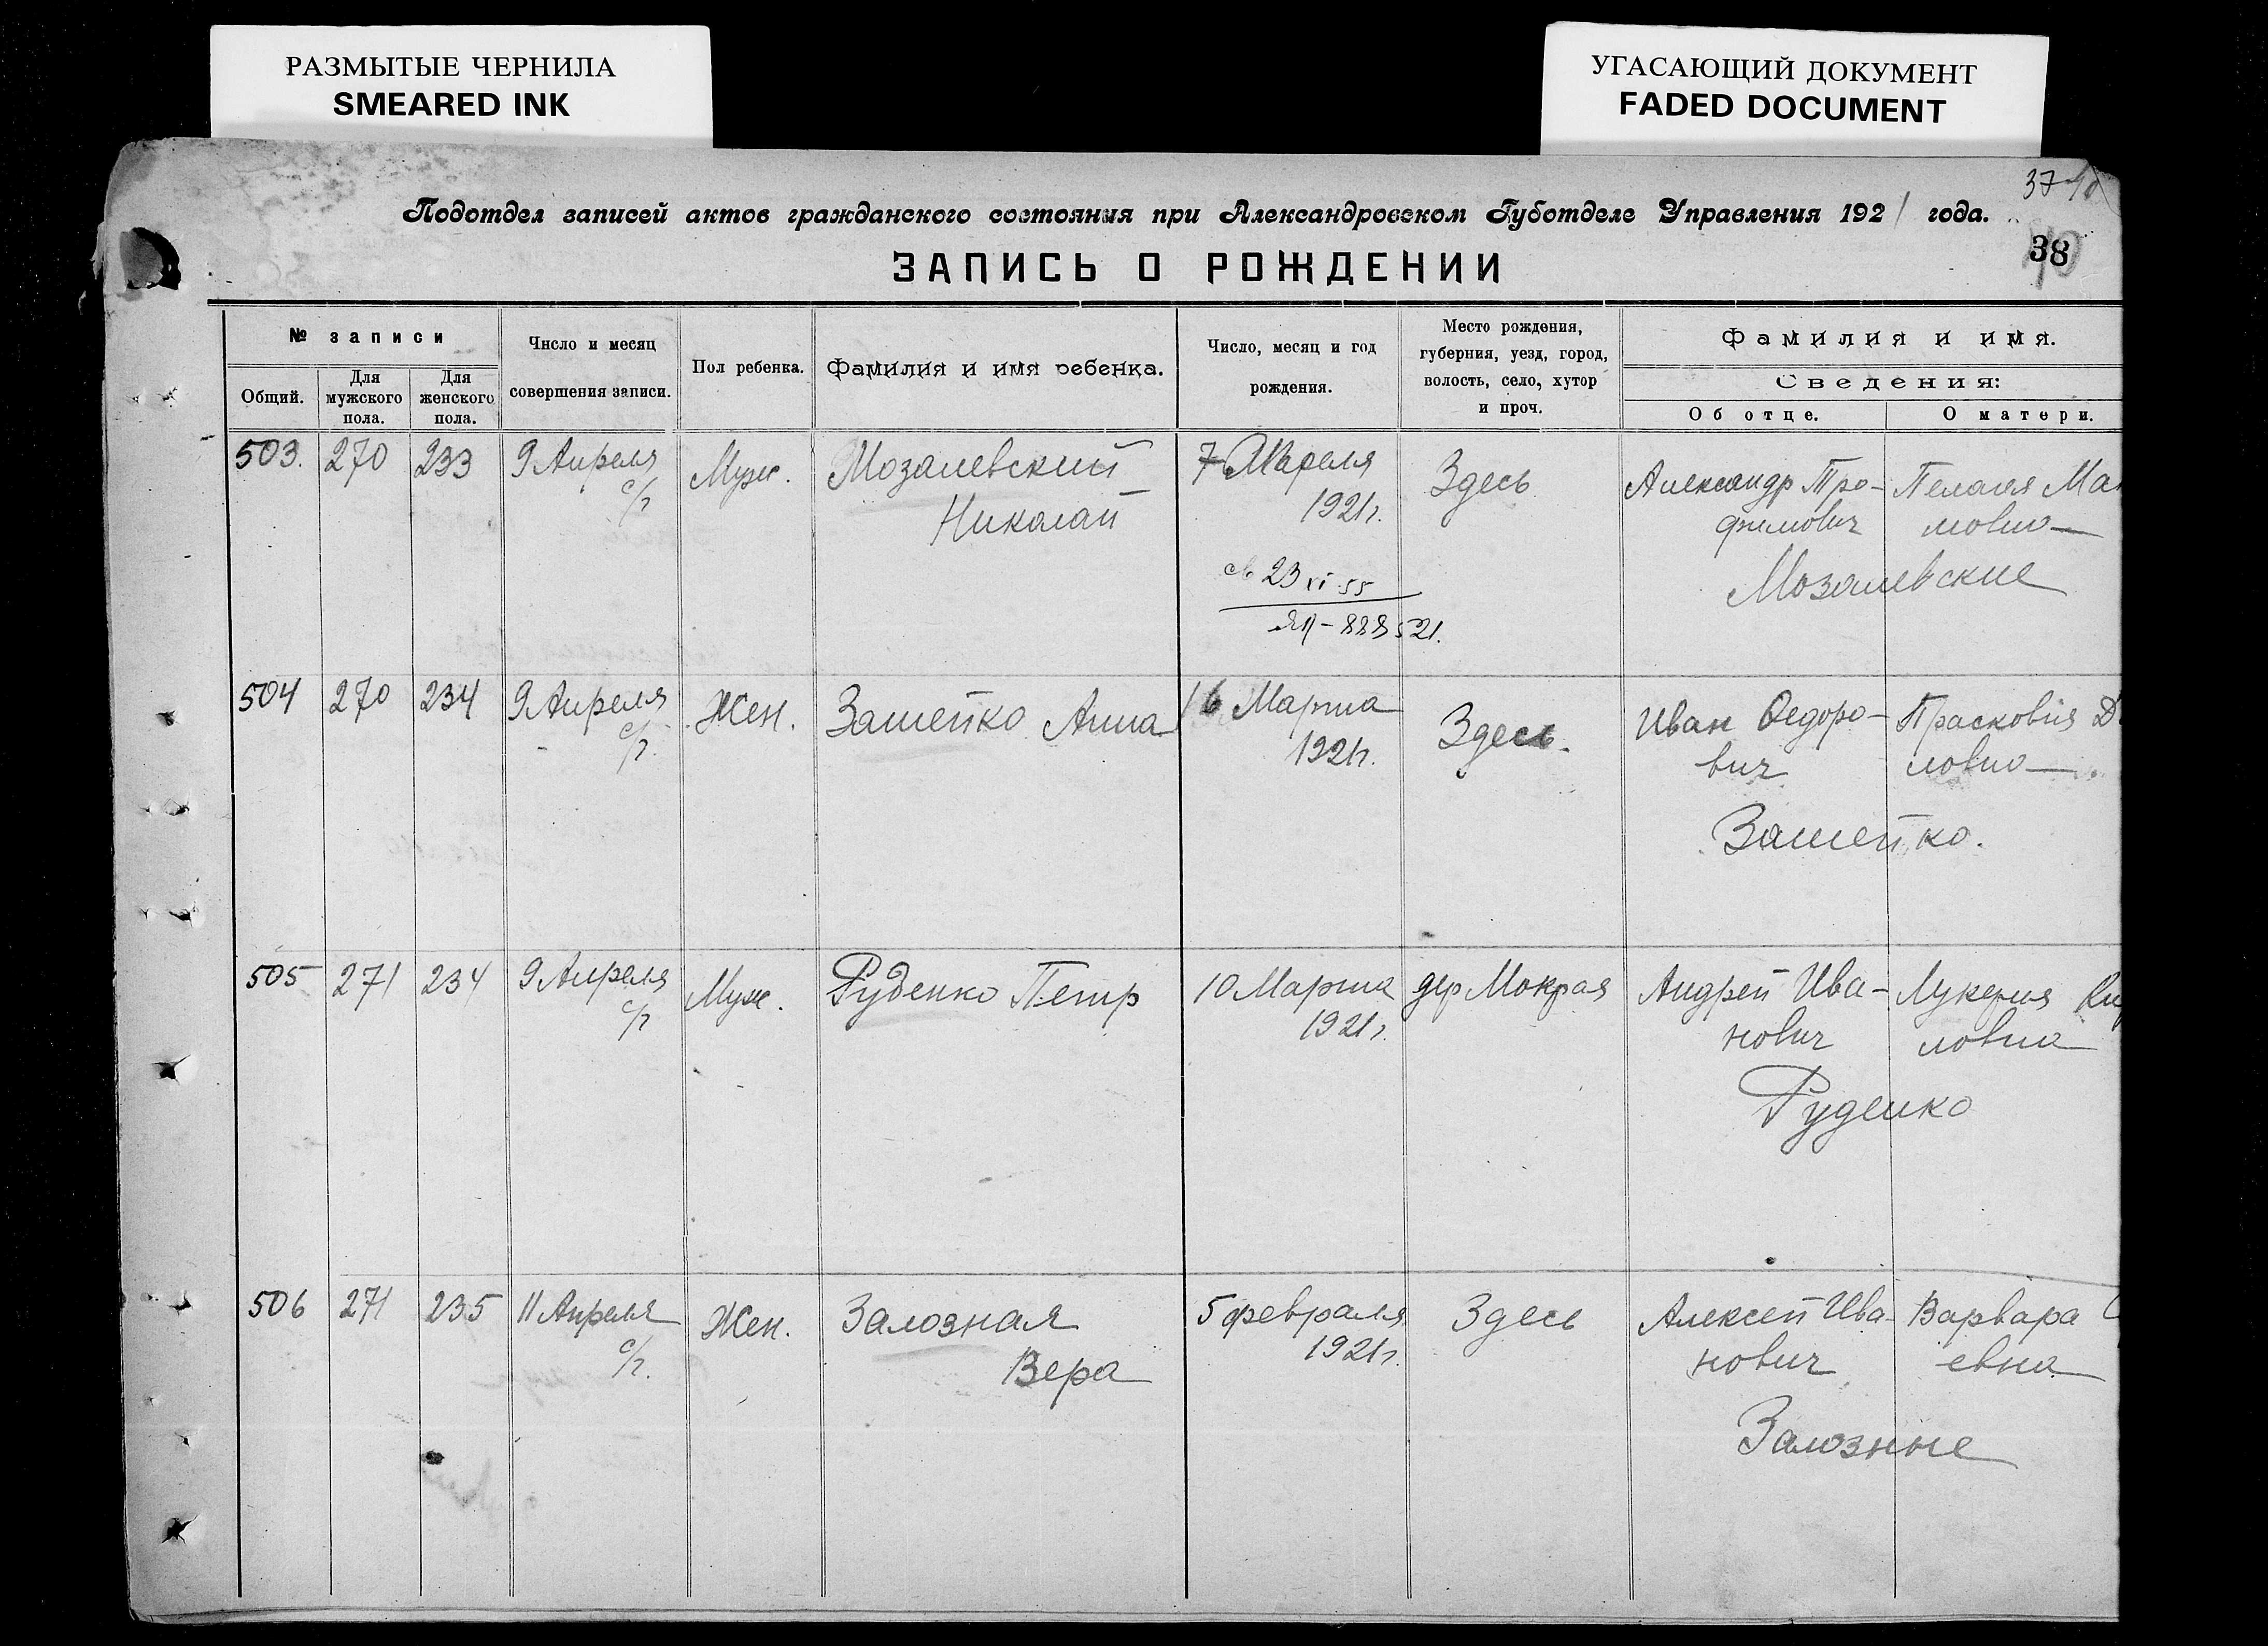 РАЗМЫТЫЕ ЧЕРНИЛА
SMEARED INK
УГАСАЮЩИЙ ДОКУМЕНТ
FADED DOCUMENT
37
Подотдел записей актов гражданского состояния при Александровском Губотделе Управления 1921 года.
38
ЗАПИСЬ О РОЖДЕНИИ
№ записи
Общий.
Для мужского пола.
Для женского пола.
Число и месяц
совершения записи.
Пол ребенка.
Фамилия и имя ребенка.
Число, месяц и год
рождения.
Место рождения,
губерния, уезд, город,
волость, село, хутор
и проч.
Фамилия и имя.
Сведения:
Об отце.
О матери.
503. 270 233 9 Апреля Муж. Мозалевский 7 Апреля Здесь Александр Тро- Пелагея
с/г Николай 1921г. фимович мовна
Мозалевские
св 23 XI 55
ЯП-888521.
504 270 234 9 Апреля Жен. Зашейко Анна 16 Марта Здесь. Иван Федоро- Прасковія
с/г. 1921г. вич ловна
Зашейко.
505 271 234 9 Апреля Муж. Руденко Петр 10 Марта дер Мокрая Андрей Ива- Лукерия
с/г 1921г. нович ловна
Руденко
506 271 235 11 Апреля Жен. Залозная 5 февраля Здесь Алексей Ива- Варвара
с/г. Вера 1921г. нович евна
Залозные